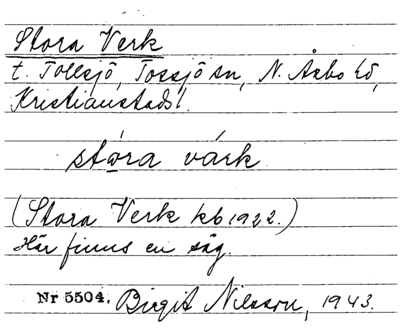 Stora Verk
t. Tollsjö, Tossjö sn, N. Åsbo hd,
Kristianstads l.
stóra várk
(Stora Verk kb 1922.)
Här finns en såg.
Nr 5504. Birgit Nilsson, 1943.